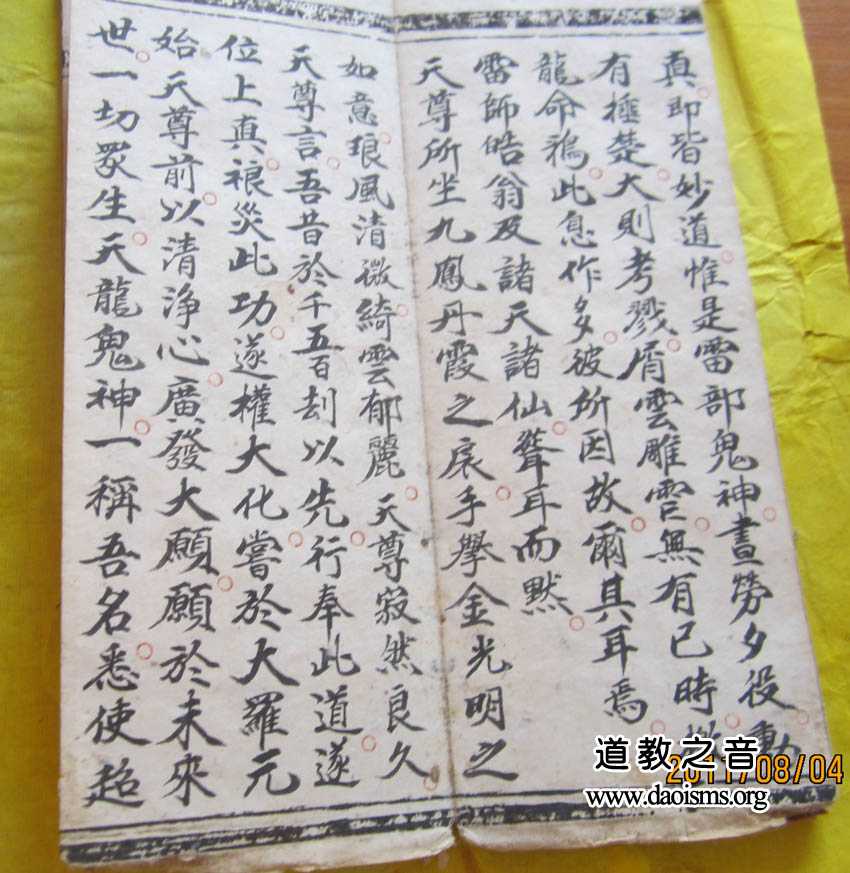 真即皆妙道惟是雷部鬼神晝勞夕役動
有捶楚大則考戮屑雲雕雹無有已時
龍命鴉此息作多彼所因故爾其耳焉
雷師皓翁及諸天諸仙聳耳而默
天尊所坐九鳳丹霞之扆手舉金光明之
如意琅風清微綺雲郁麗天尊寂然良久
天尊言吾昔於千五百刼以先行奉此道遂
位上真裉災此功遂權大化嘗於大羅元
始天尊前以清淨心廣發大願願於未來
世一切眾生天龍鬼神一稱吾名悉使超
道教之音
2011/08/04
www.daoisms.org